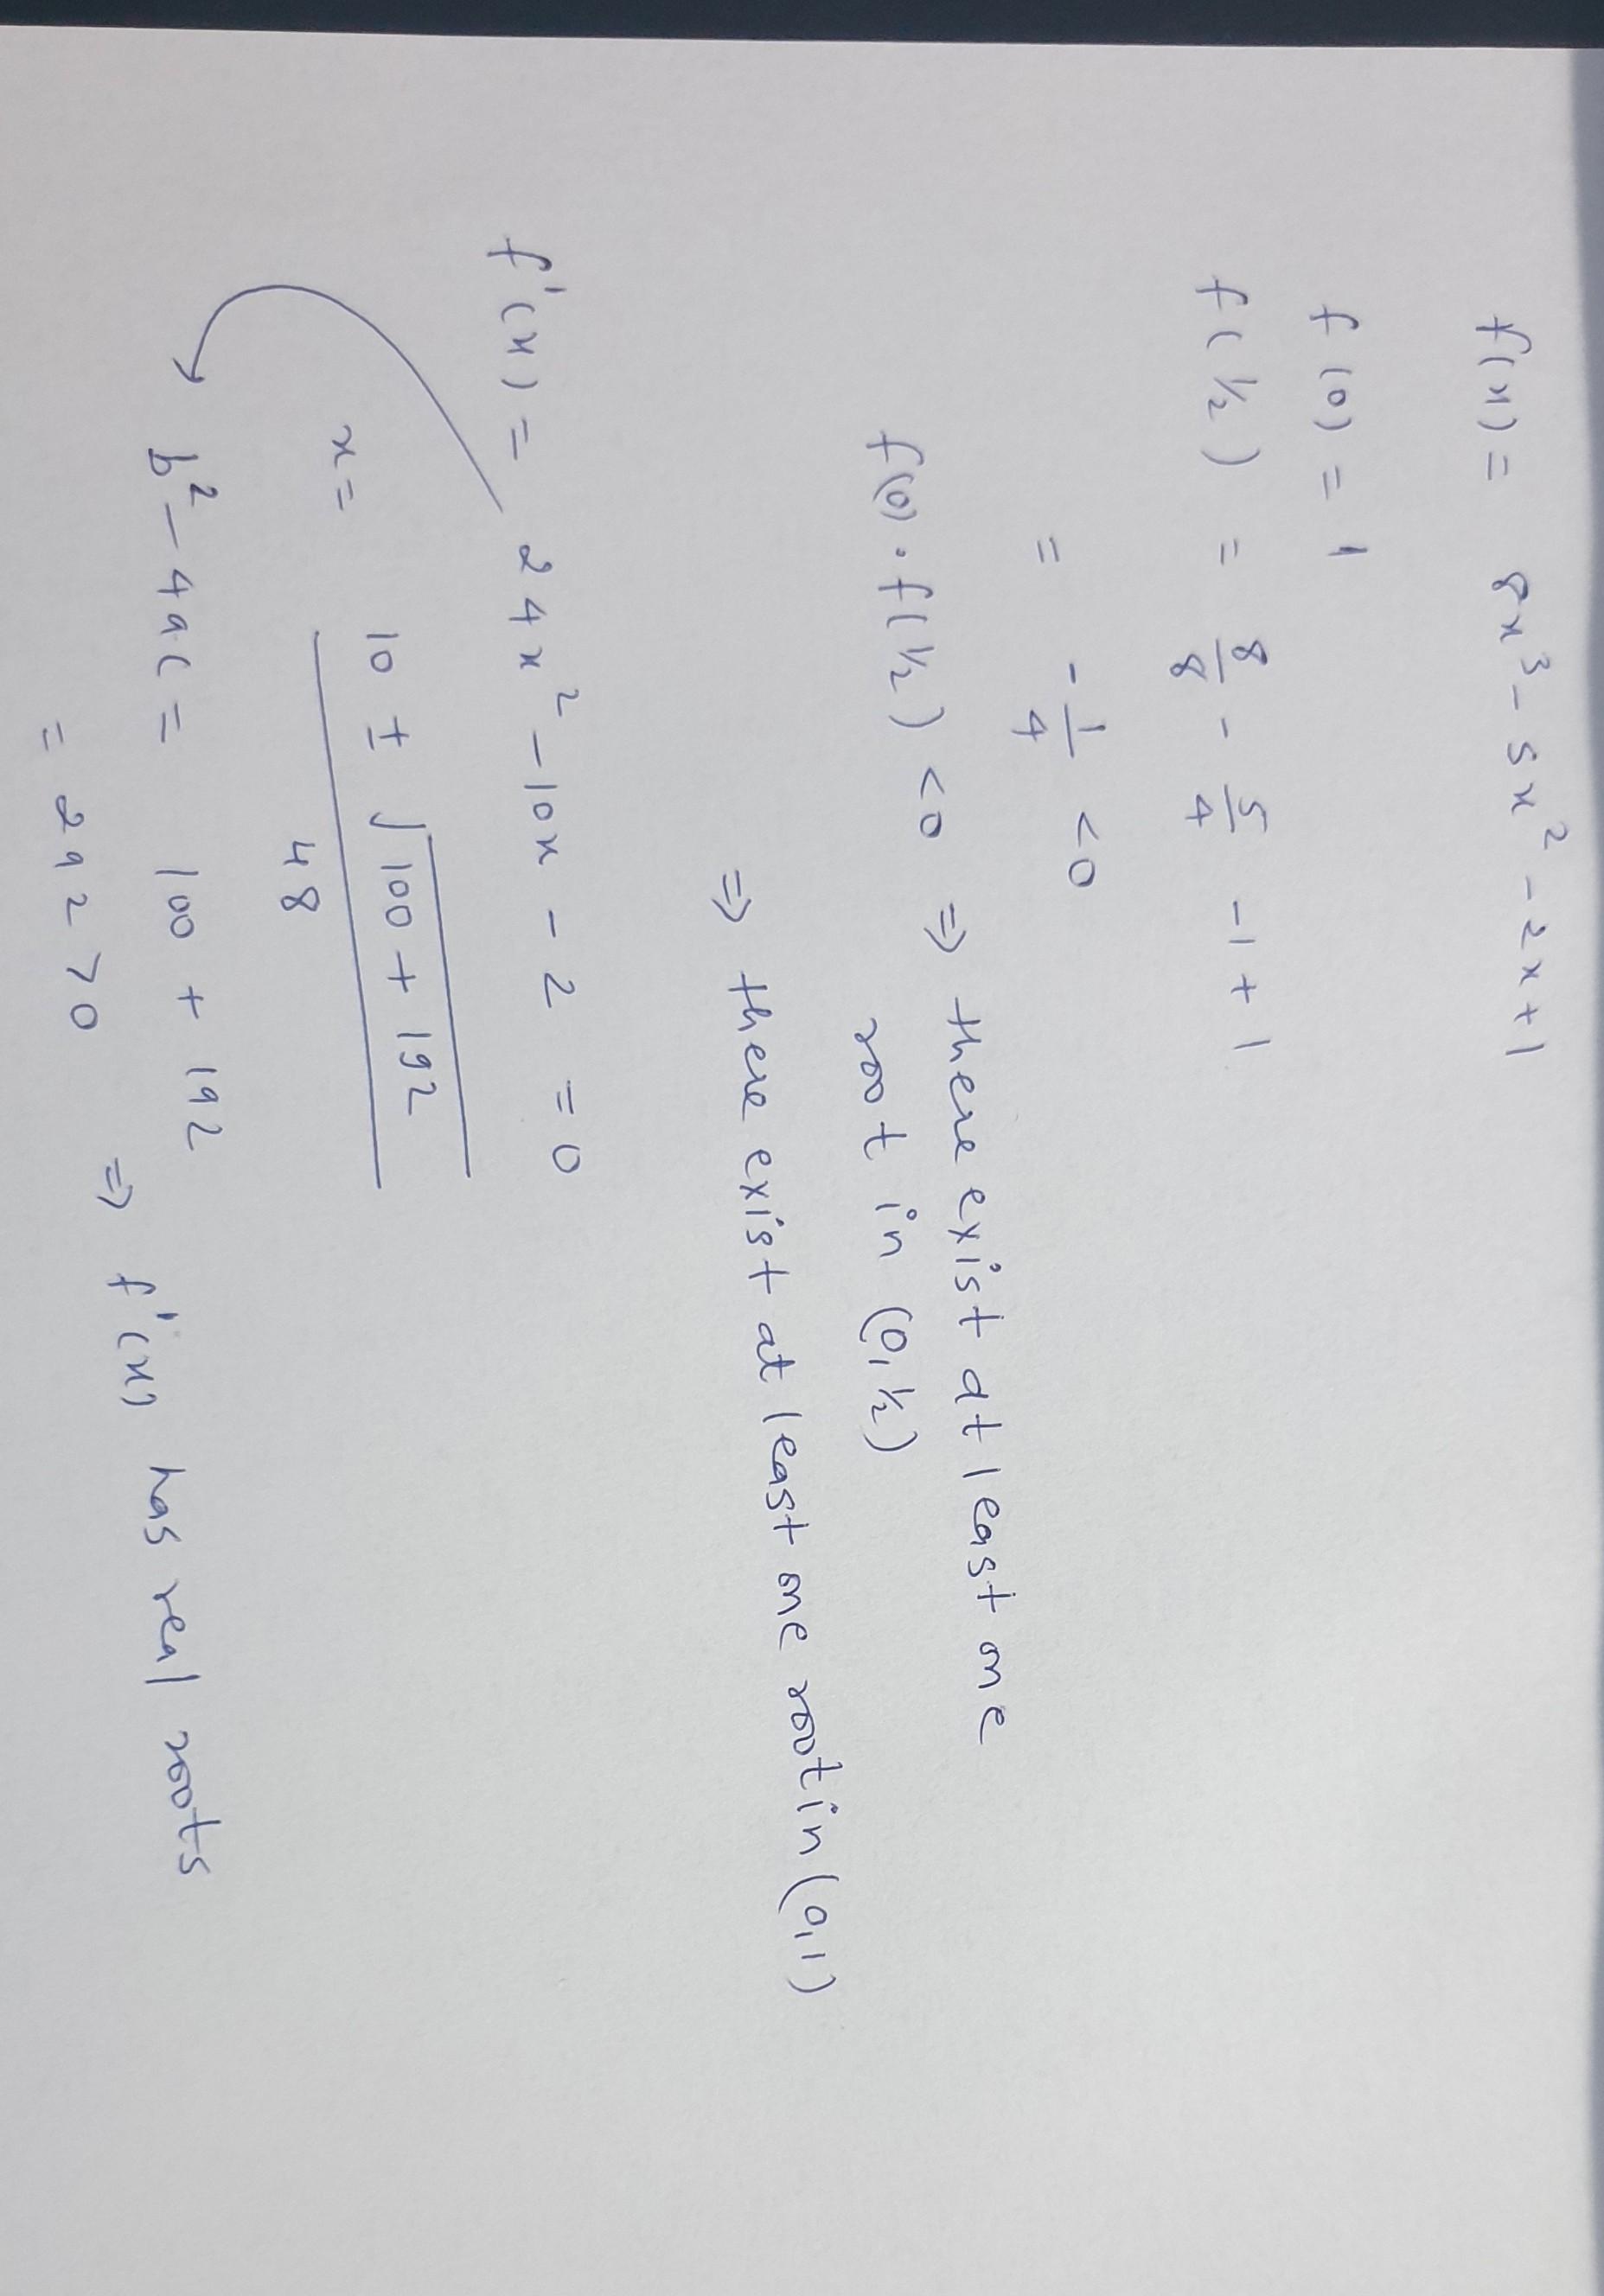 f(x) = 8x³ - 5x² - 2x + 1
f(0) = 1
f(½) = 8/8 - 5/4 - 1 + 1
= -1/4 < 0
f(0) · f(½) < 0 ⇒ there exist at least one
root in (0, ½)
⇒ there exist at least one root in (0, 1)
f'(x) = 24x² - 10x - 2 = 0
x = (10 ± √(100 + 192))/48
b² - 4ac = 100 + 192
= 292 > 0 ⇒ f'(x) has real roots